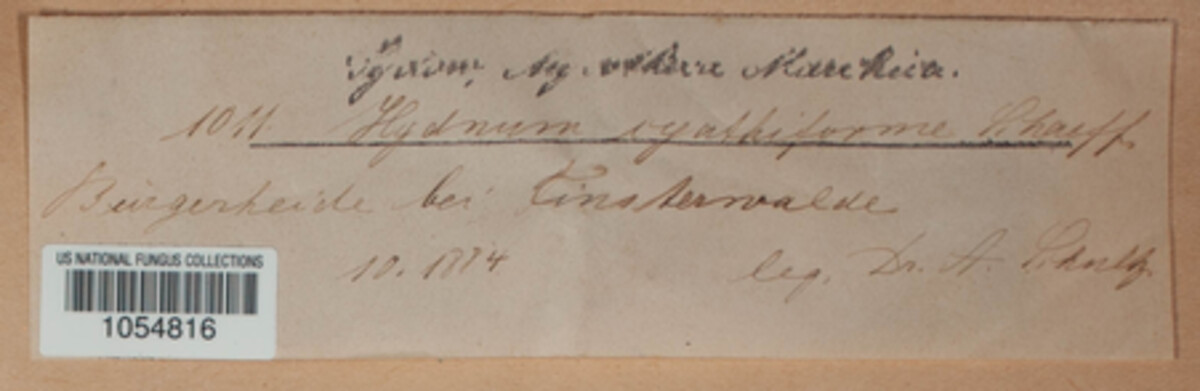 Sydow, Mycotheca Marchica.
1011. Hydnum cyathiforme Schaeff.
Bürgerheide bei Finsterwalde
10. 1884 leg. Dr. A. Schultz
US NATIONAL FUNGUS COLLECTIONS
1054816